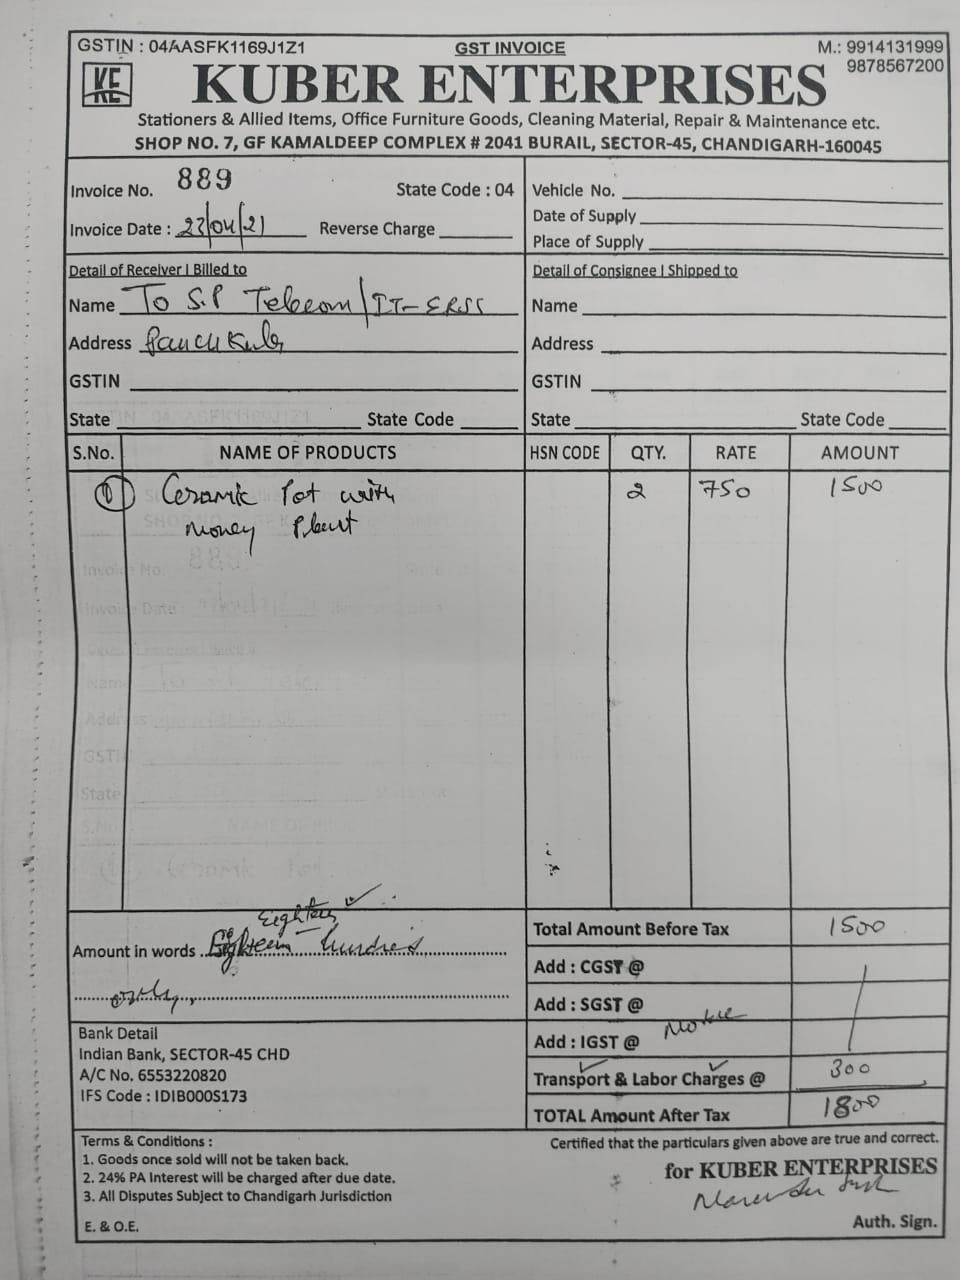 GSTIN : 04AASFK1169J1Z1
GST INVOICE
M.: 9914131999
9878567200
KE
KUBER ENTERPRISES
Stationers & Allied Items, Office Furniture Goods, Cleaning Material, Repair & Maintenance etc.
SHOP NO. 7, GF KAMALDEEP COMPLEX # 2041 BURAIL, SECTOR-45, CHANDIGARH-160045
Invoice No. 889 State Code : 04
Invoice Date : 27/04/21 Reverse Charge
Vehicle No.
Date of Supply
Place of Supply
Detail of Receiver | Billed to
Name To S.P Telecom/IT-ERSS
Address Panchkula
GSTIN
State State Code
Detail of Consignee | Shipped to
Name
Address
GSTIN
State State Code
S.No. NAME OF PRODUCTS HSN CODE QTY. RATE AMOUNT
1 Ceramic Pot with 2 750 1500
money Plant
Eighteen
Amount in words .. Eighteen hundred
only,
Total Amount Before Tax 1500
Add : CGST @
Add : SGST @
Add : IGST @
Transport & Labor Charges @ 300
TOTAL Amount After Tax 1800
Bank Detail
Indian Bank, SECTOR-45 CHD
A/C No. 6553220820
IFS Code : IDIB000S173
Terms & Conditions :
1. Goods once sold will not be taken back.
2. 24% PA Interest will be charged after due date.
3. All Disputes Subject to Chandigarh Jurisdiction
E. & O.E.
Certified that the particulars given above are true and correct.
for KUBER ENTERPRISES
Narender Singh
Auth. Sign.